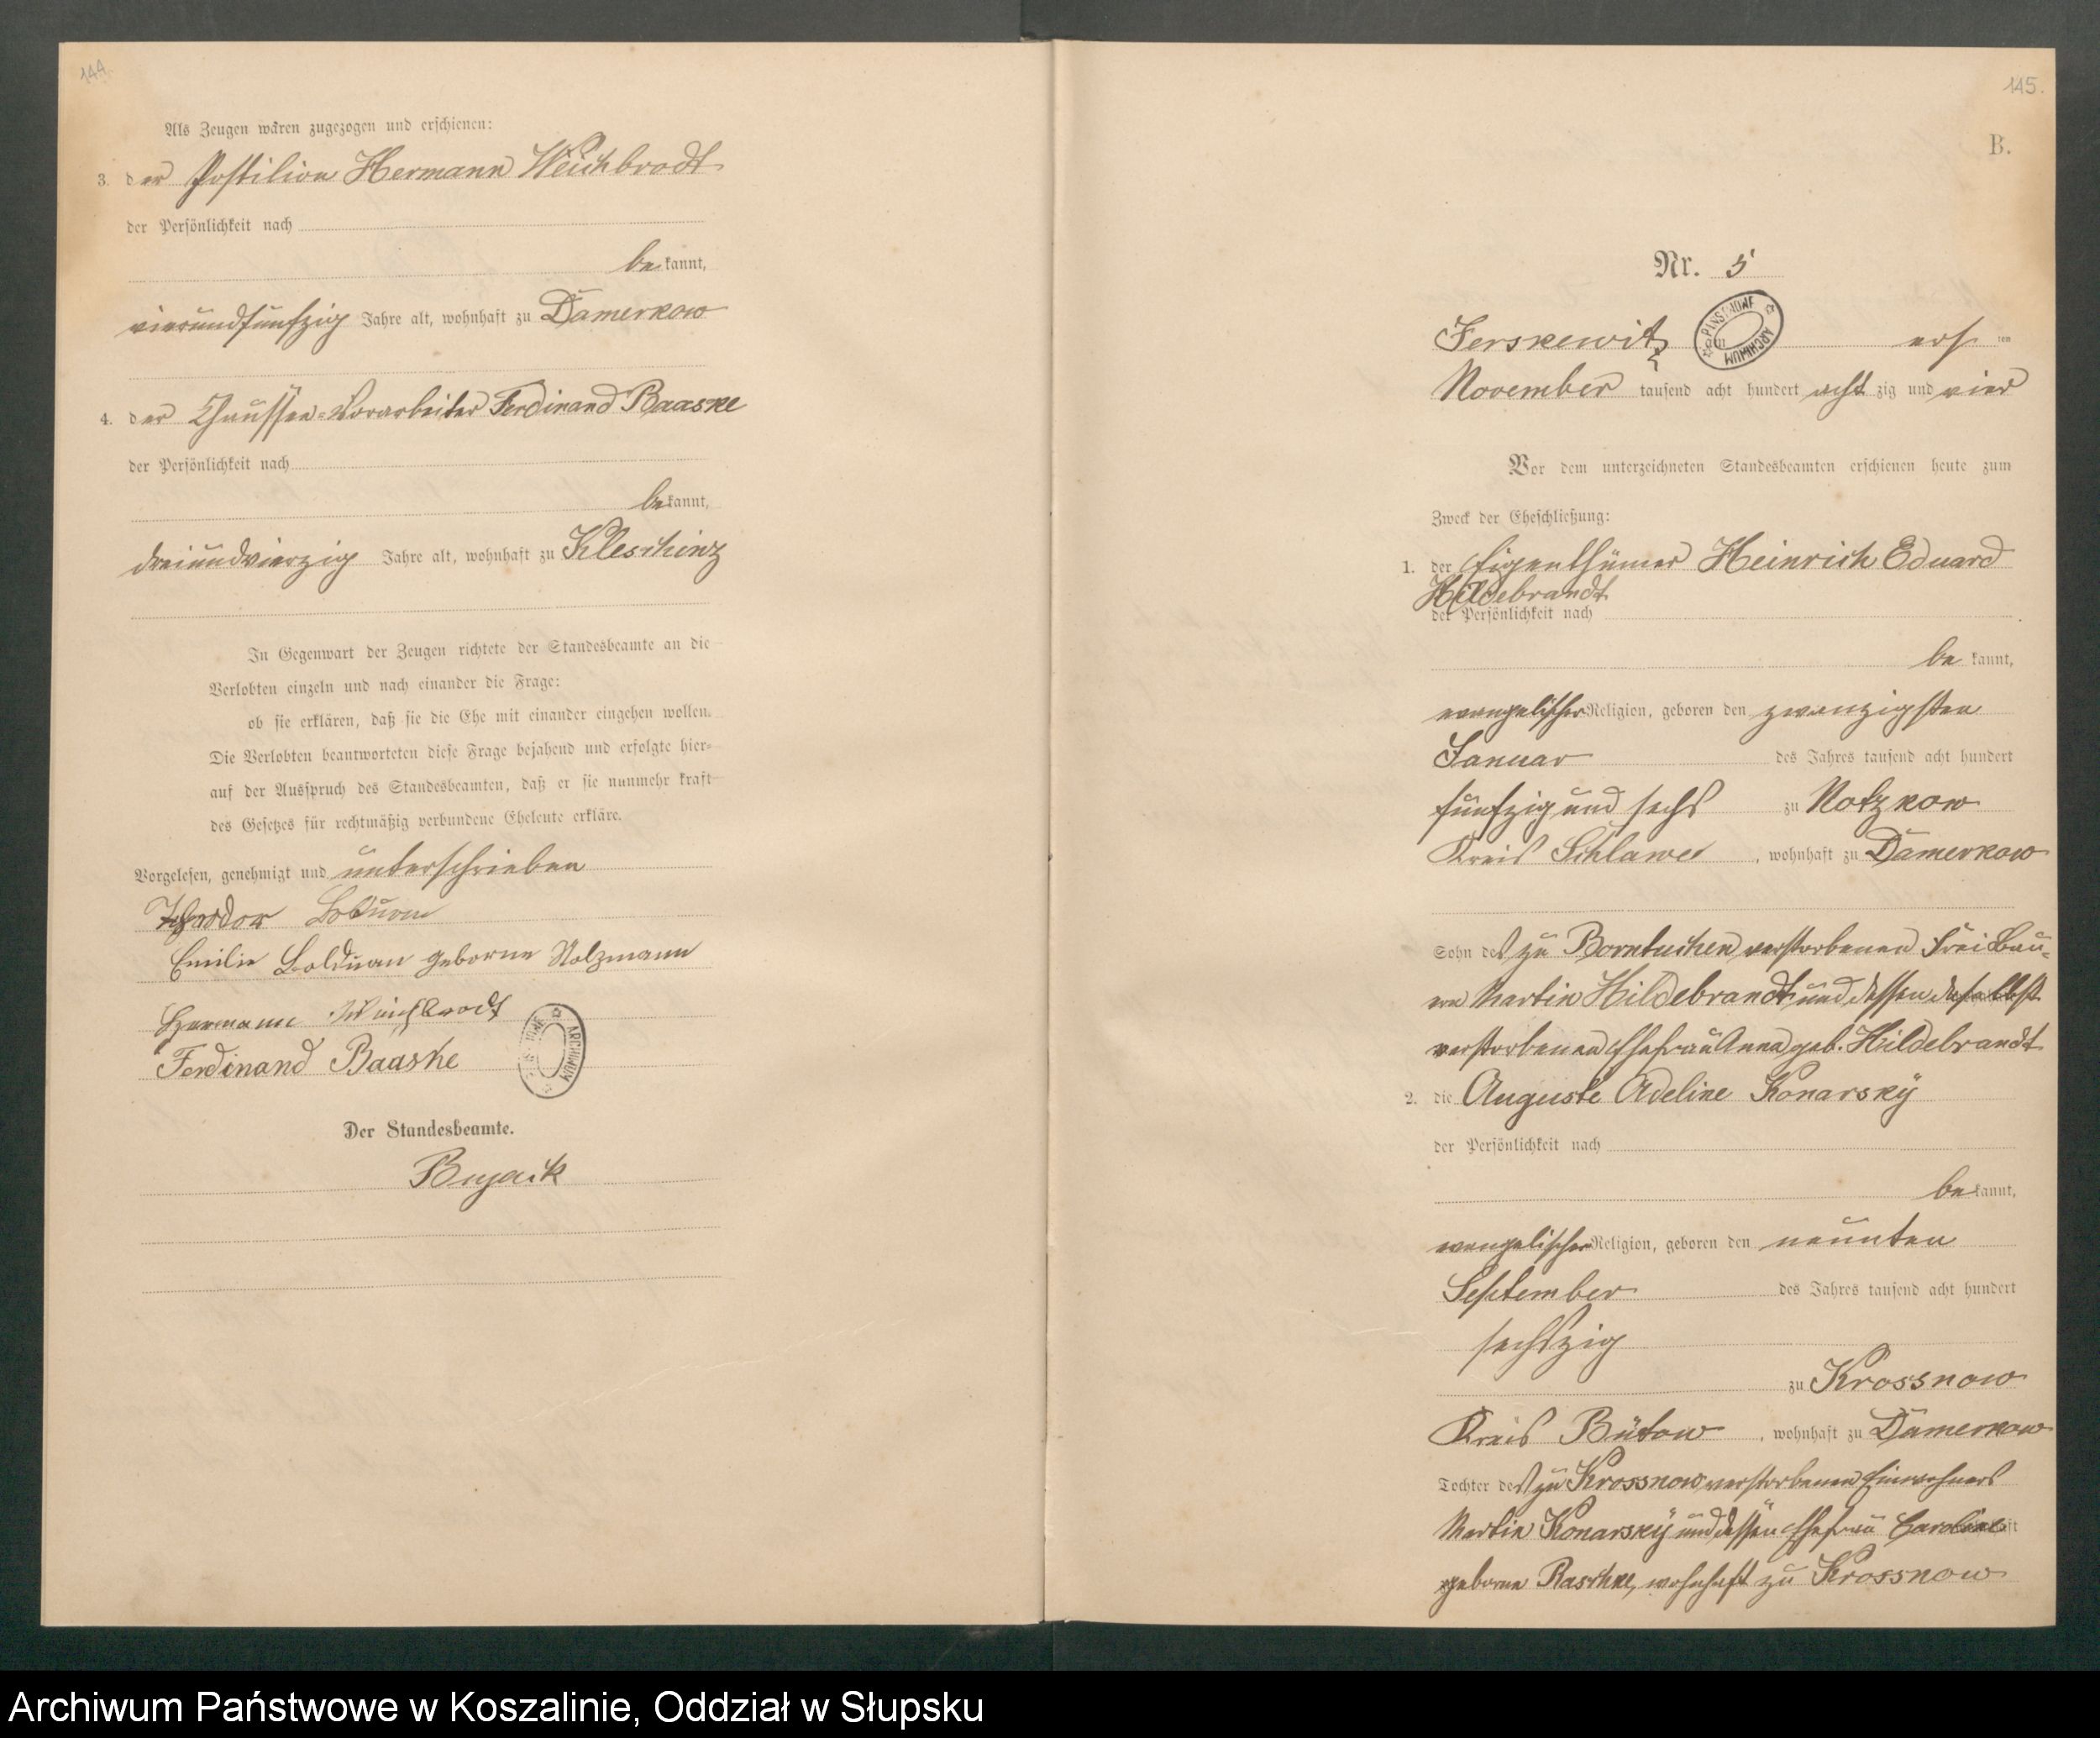 144.
Als Zeugen waren zugezogen und erschienen:
3. der Postilion Hermann Weichbrodt
der Persönlichkeit nach
bekannt,
vierundfünfzig Jahre alt, wohnhaft zu Damerkow
4. der Chaussee-Vorarbeiter Ferdinand Baaske
der Persönlichkeit nach
bekannt,
dreiundvierzig Jahre alt, wohnhaft zu Kleschinz
In Gegenwart der Zeugen richtete der Standesbeamte an die
Verlobten einzeln und nach einander die Frage:
ob sie erklären, daß sie die Ehe mit einander eingehen wollen.
Die Verlobten beantworteten diese Frage bejahend und erfolgte hier-
auf der Ausspruch des Standesbeamten, daß er sie nunmehr kraft
des Gesetzes für rechtmäßig verbundene Eheleute erkläre.
Vorgelesen, genehmigt und unterschrieben
Theodor Lolduan
Emilie Bolduan geborne Nolzmann
Hermann Weichbrodt
Ferdinand Baaske
ARCHIWUM
Der Standesbeamte.
145.
B.
Nr. 5
Jerskewitz am ersten
ARCHIWUM PAŃSTWOWE
November tausend acht hundert achtzig und vier
Vor dem unterzeichneten Standesbeamten erschienen heute zum
Zweck der Eheschließung:
1. der Eigenthümer Heinrich Eduard
Hildebrandt
der Persönlichkeit nach
bekannt,
evangelischer Religion, geboren den zwanzigsten
Januar des Jahres tausend acht hundert
fünfzig und sechs zu Notzkow
Kreis Schlawe, wohnhaft zu Damerkow
Sohn des zu Borntuchen verstorbenen Freibau-
ern Martin Hildebrandt und dessen daselbst
verstorbenen Ehefrau Anna geb. Hildebrandt
2. die Auguste Adeline Konarsky
der Persönlichkeit nach
bekannt,
evangelischer Religion, geboren den neunten
September des Jahres tausend acht hundert
sechszig
zu Krossnow
Kreis Bütow, wohnhaft zu Damerkow
Tochter des zu Krossnow verstorbenen Einwohners
Martin Konarsky und dessen Ehefrau Caroline
geborne Raschke, wohnhaft zu Krossnow
Archiwum Państwowe w Koszalinie, Oddział w Słupsku